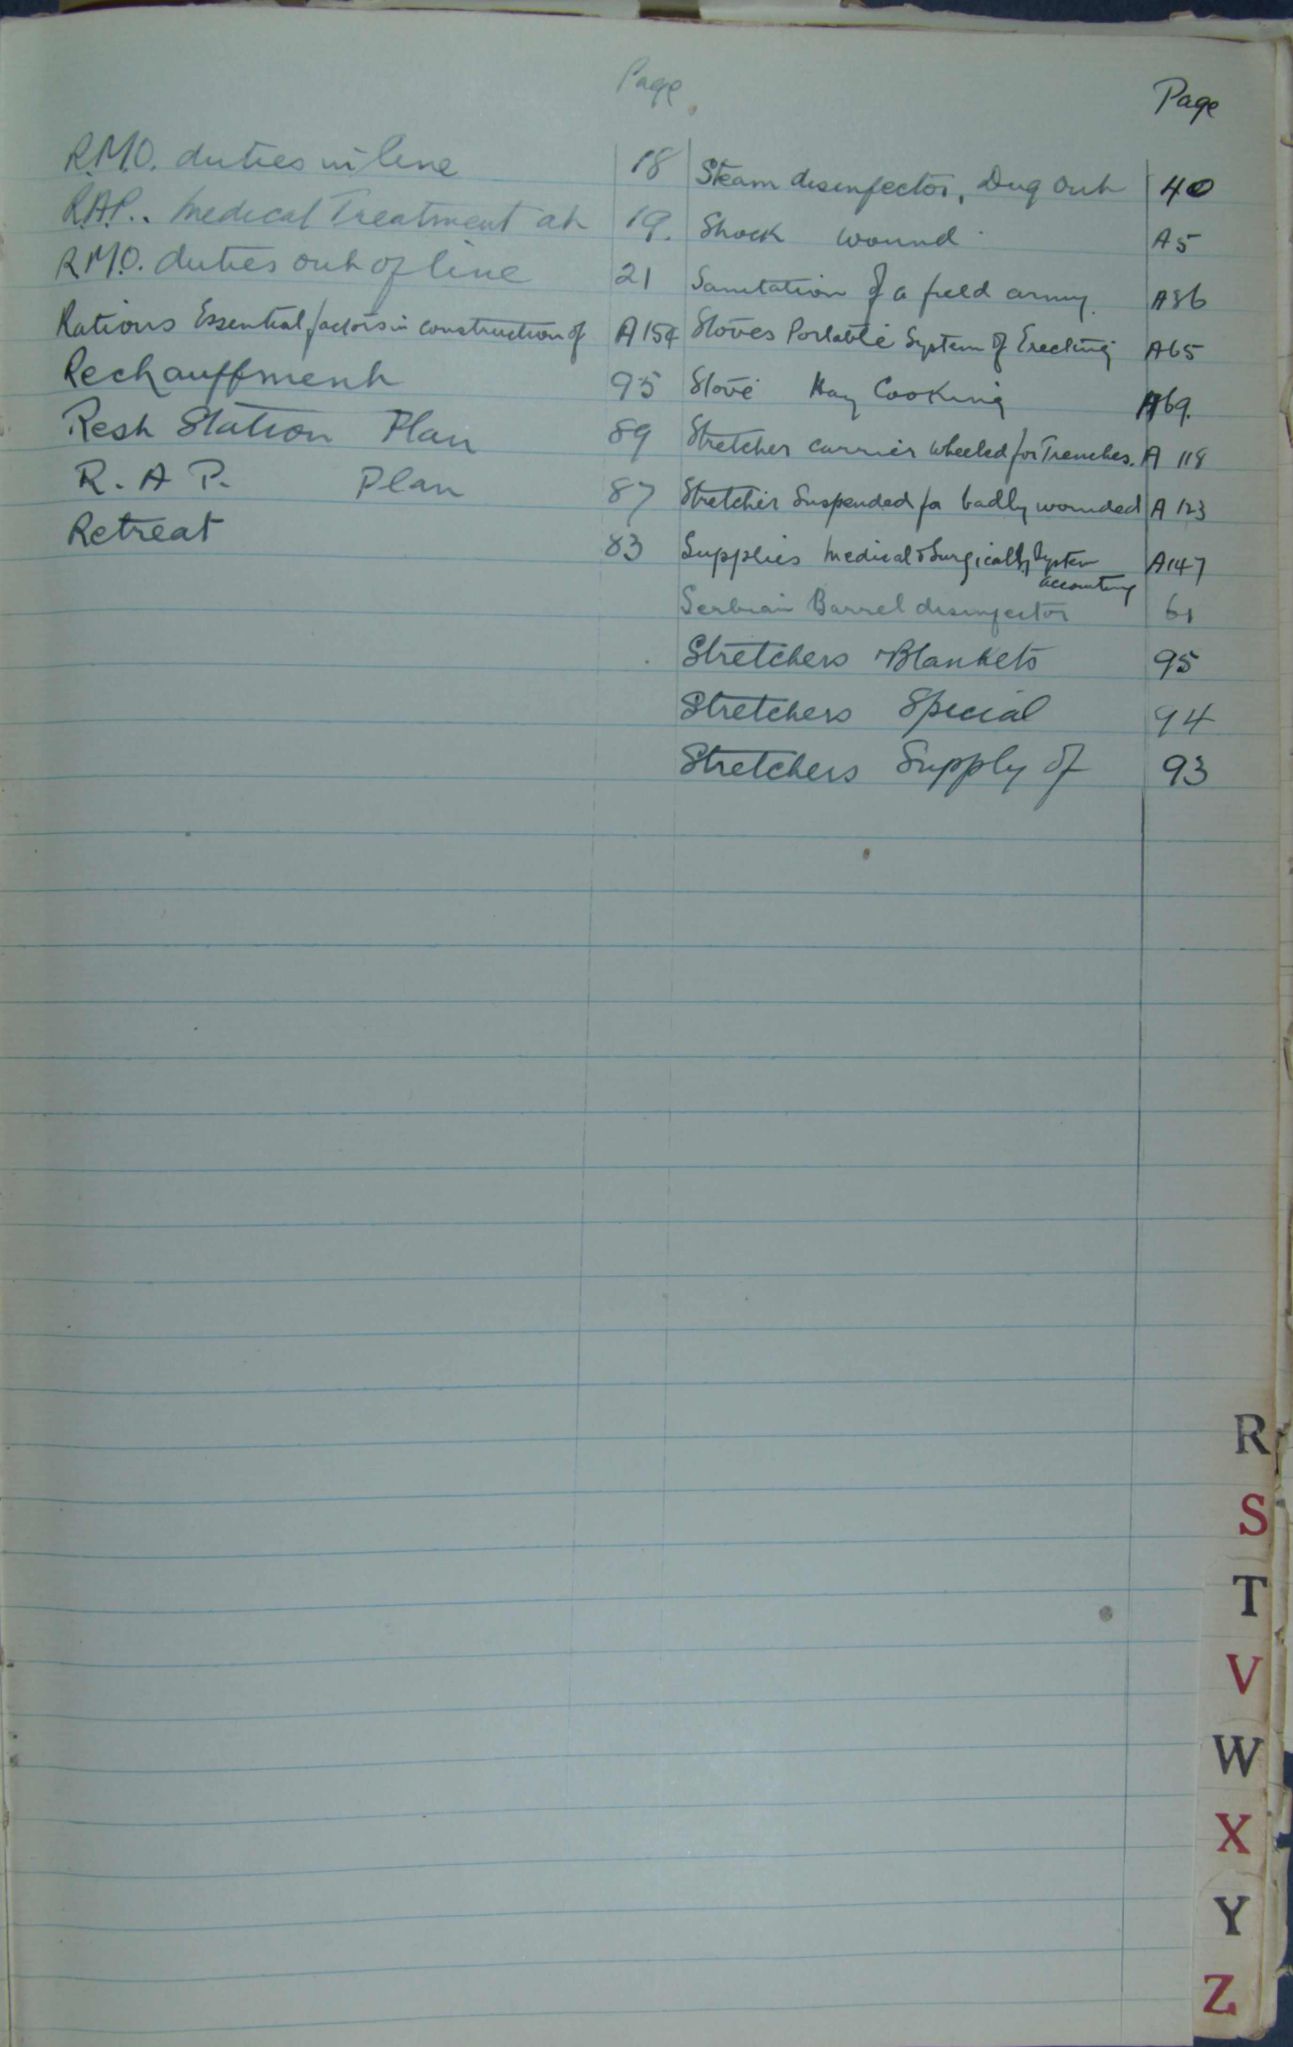 Page
R.M.O. duties in line 18
R.A.P.. Medical Treatment at 19.
R.M.O. duties out of line 21
Rations Essential factors in construction of A154
Rechauffment 95
Rest Station Plan 89
R. A P. Plan 87
Retreat 83
Page
Steam disinfector, Dug Out 40
Shock wound A5
Sanitation of a field army. A36
Stoves Portable System of Erecting A65
Stove Hay Cooking A69.
Stretcher carrier wheeled for Trenches. A 118
Stretcher Suspended for badly wounded A 123
Supplies Medical & Surgical System A147
accounting
Serbian Barrel disinfector 61
Stretchers & Blankets 95
Stretchers Special 94
Stretchers Supply of 93
R
S
T
V
W
X
Y
Z